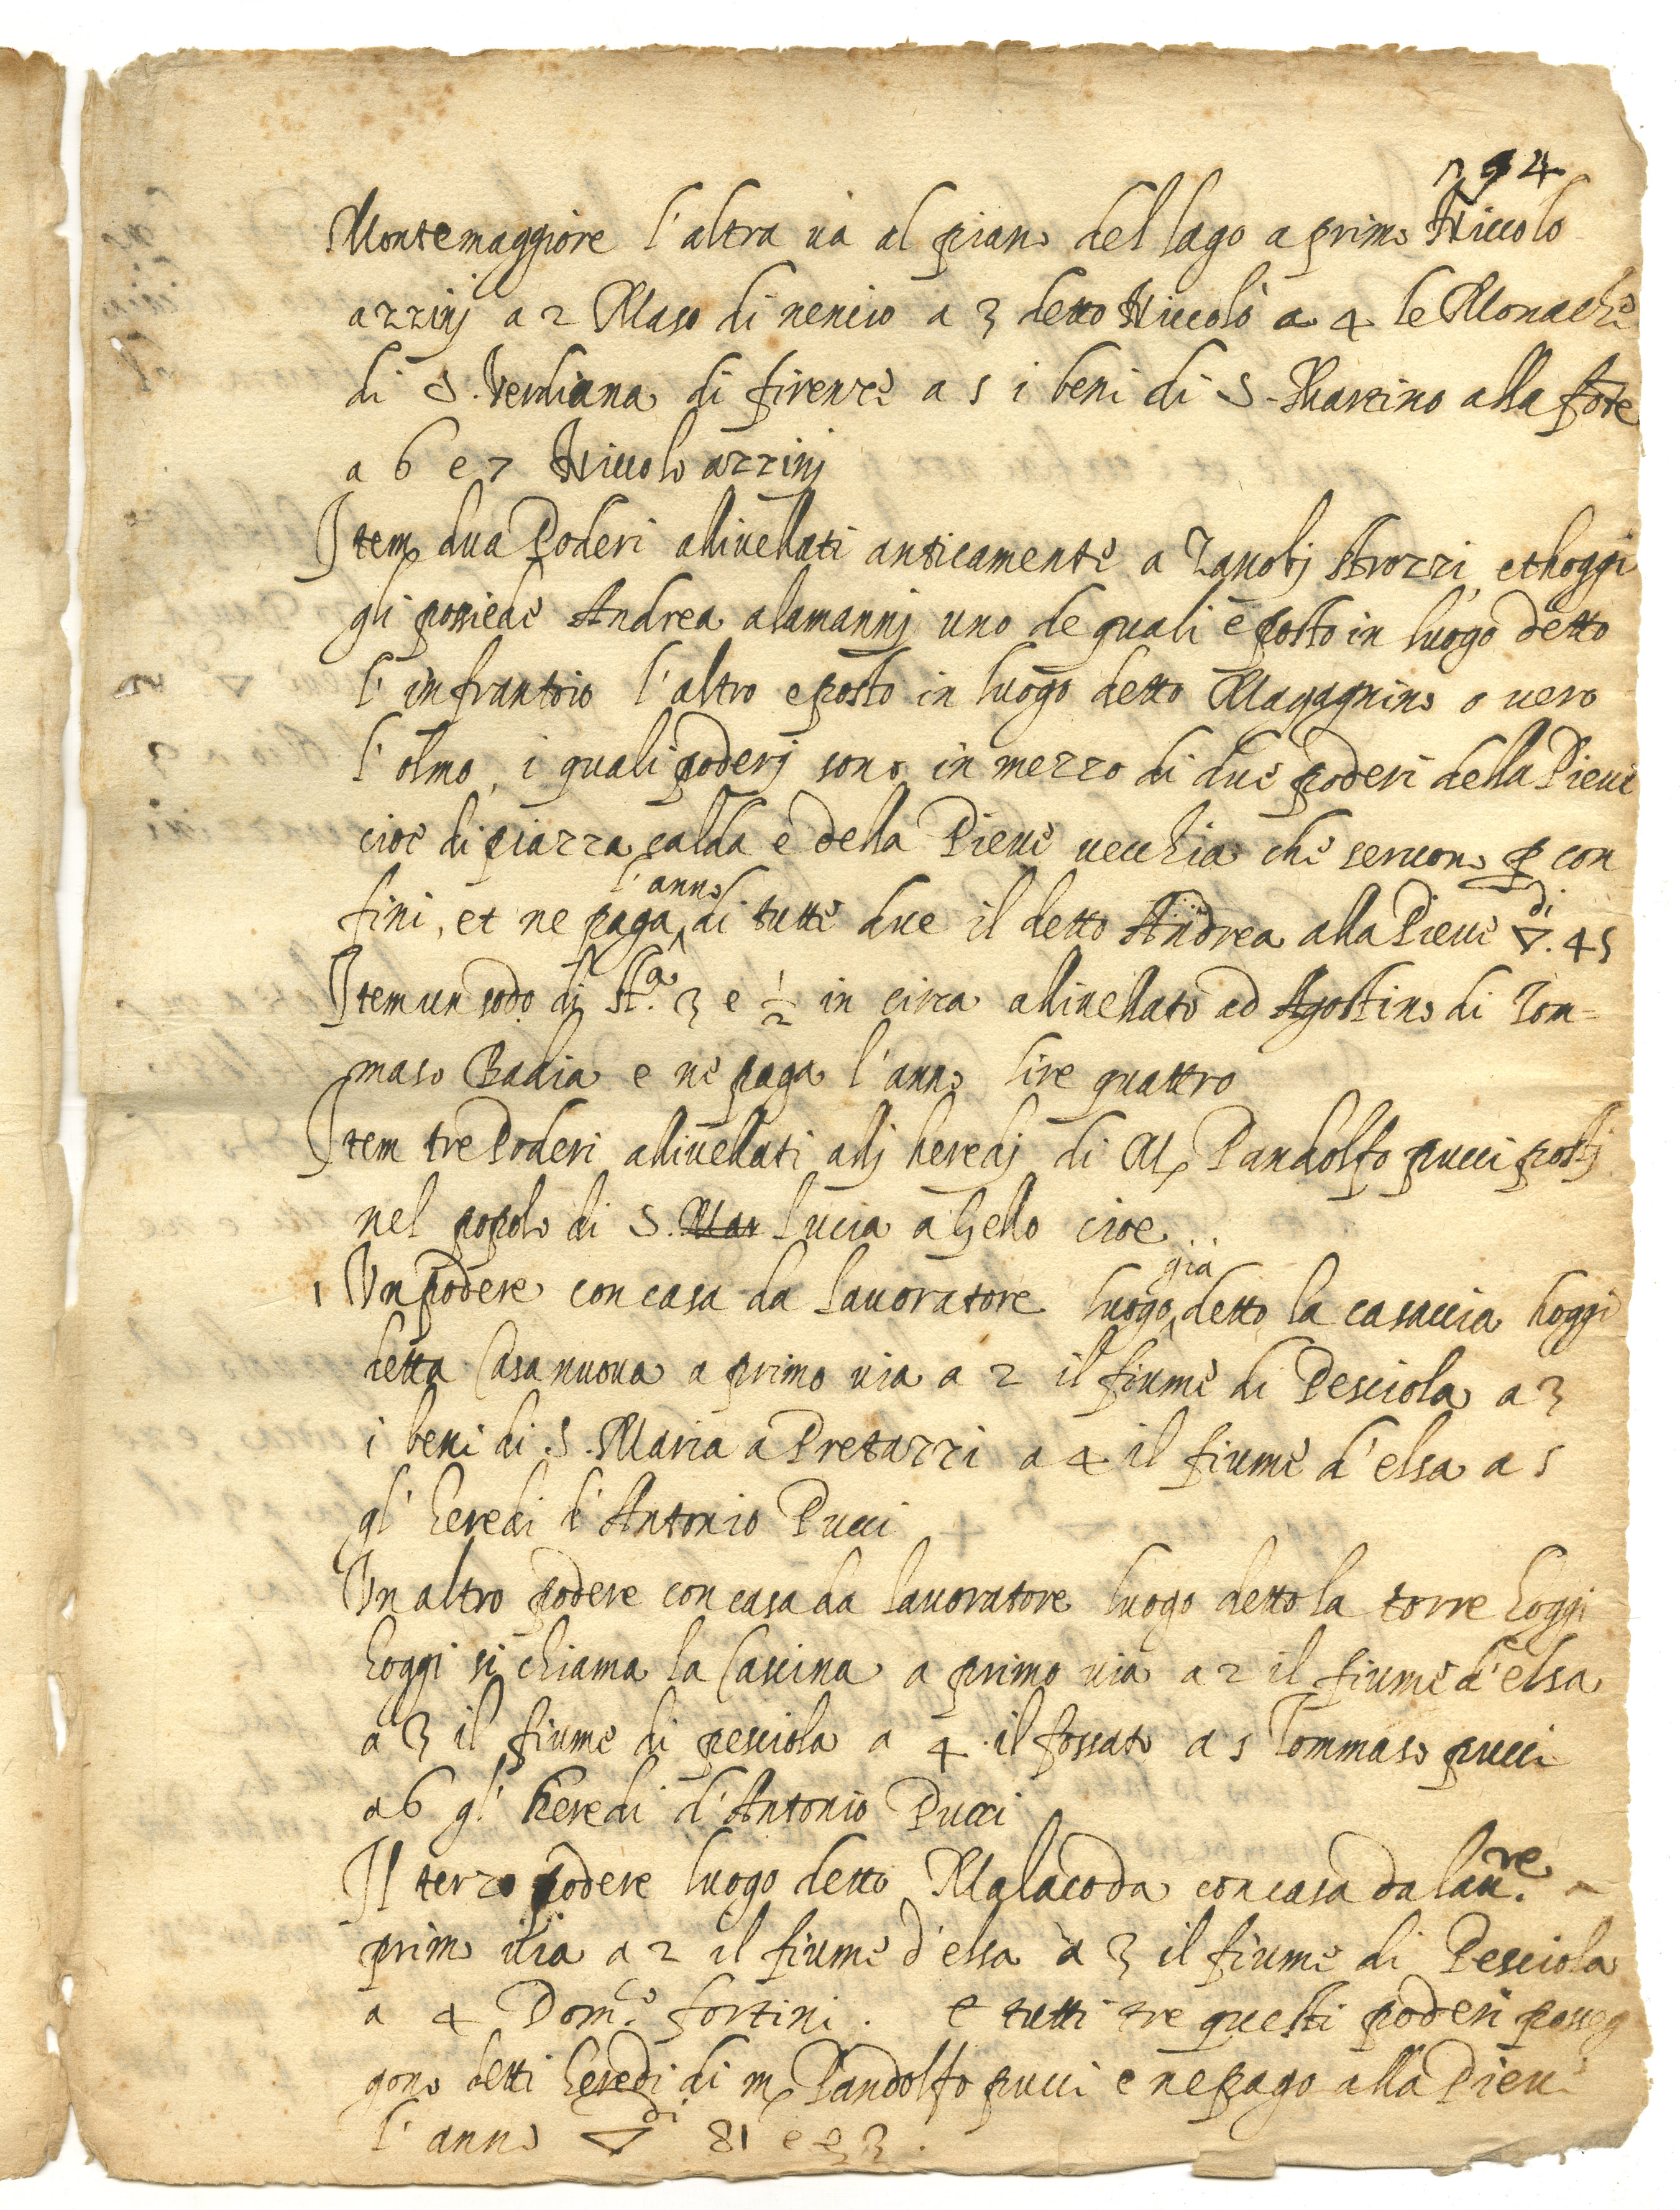 Montemaggiore l'altra uà al piano del lago a primo Niccolo
azzinj a 2 Maso di nencio a 3 detto Niccolò a 4 le Monache
di S. Verdiana di firenze a 5 i beni di S. Martino alla fote
a 6 e 7 Niccolo azzinj
Item dua Poderi alliuellati anticamente a Zanobj strozzi, et hoggi
gli possiede Andrea alamannj uno de quali è posto in luogo detto
l'infrantoio l'altro e posto in luogo detto Magagnino o uero
l'olmo, i quali poderj sono in mezzo di due poderi della Pieue
cioè di piazza calda e della Pieue uecchia che seruono p con
fini, et ne paga l'anno di tutte due il detto Andrea alla Pieue ▽.di 45
Item un sodo di sta. 3 e 1/2 in circa alliuellato ad Agostino di Tom=
maso Badia e ne paga l'anno lire quattro
Item tre Poderi alliuellati allj heredj di M Pandolfo pucci postj
nel popolo di S. Mar Lucia a Gello cioe
1 Vn podere con casa da lauoratore luogo già detto la casaccia hoggi
detta Casanuova a primo uia a 2 il fiume di Pesciola a 3
i beni di S. Maria a Pretazzi a 4 il fiume d'elsa a 5
gl' heredi d'Antonio Pucci
Vn altro podere con casa da lauoratore luogo detto la torre hoggi
hoggi si chiama la Cascina a primo uia a 2 il fiume d'elsa
a 3 il fiume di pesciola a 4 il fossato a 5 Tommaso pucci
a 6 gl' heredi d'Antonio Pucci
Il terzo podere luogo detto Malacoda con casa da laure. a
primo uia a 2 il fiume d'elsa a 3 il fiume di Pesciola
a 4 Dome. fortini. e tutti tre questi poderi posseg
gono detti heredi di m Pandolfo pucci e ne pago alla Pieue
l'anno ▽di 81 e